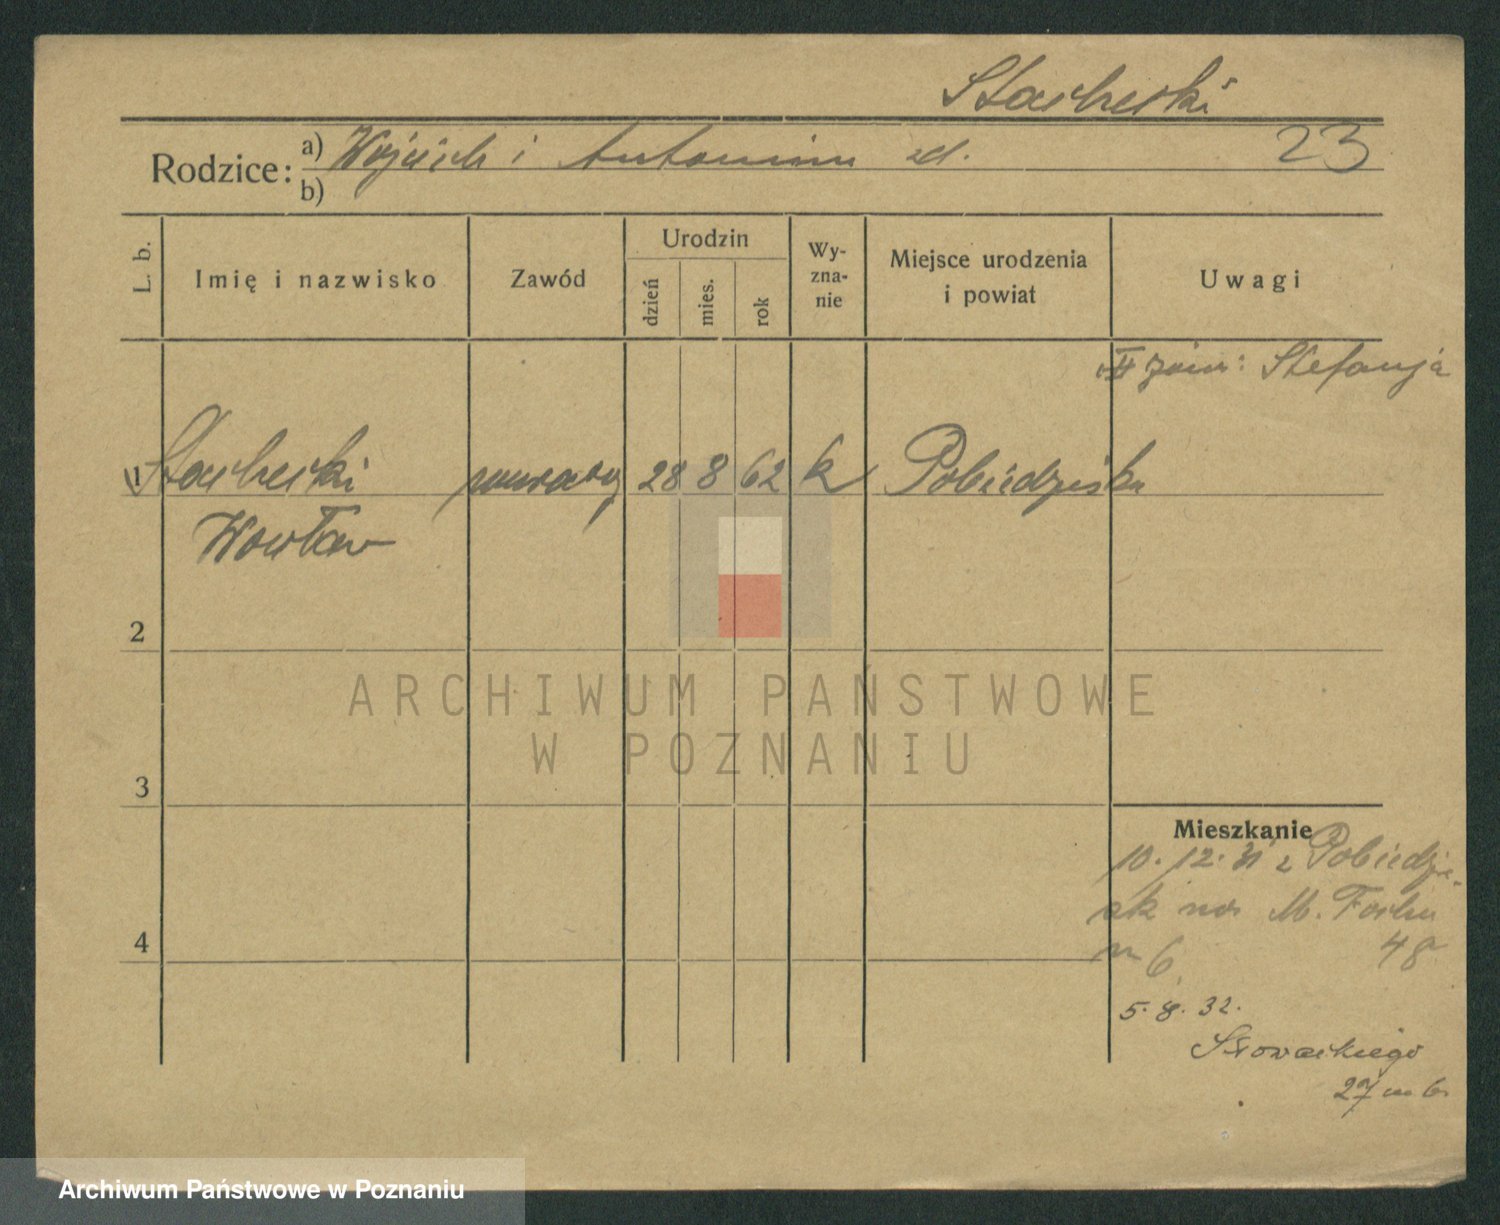 Stacherski
Rodzice: a) Wojciech i Antonina zd. 23
b)
L. b.
Imię i nazwisko
Zawód
Urodzin
dzień
mies.
rok
Wy-
zna-
nie
Miejsce urodzenia
i powiat
Uwagi
Stefanja
1 Stacherski 28 8 62 k Pobiedziska
Wacław
2
3
4
ARCHIWUM PAŃSTWOWE
W POZNANIU
Mieszkanie
10. 12. 31 z Pobiedzi-
sk M. Focha
m 6 48
5. 8. 32.
Słowackiego
27 m 6
Archiwum Państwowe w Poznaniu